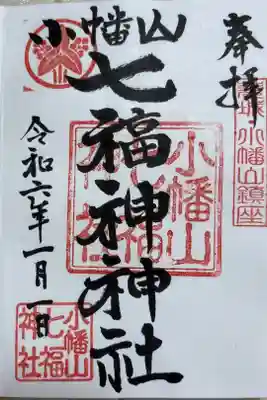 奉拝
小幡山
七福神神社
令和六年一月一日
小幡山鎮座
小幡山
七福
神社
小幡山
七福
神社